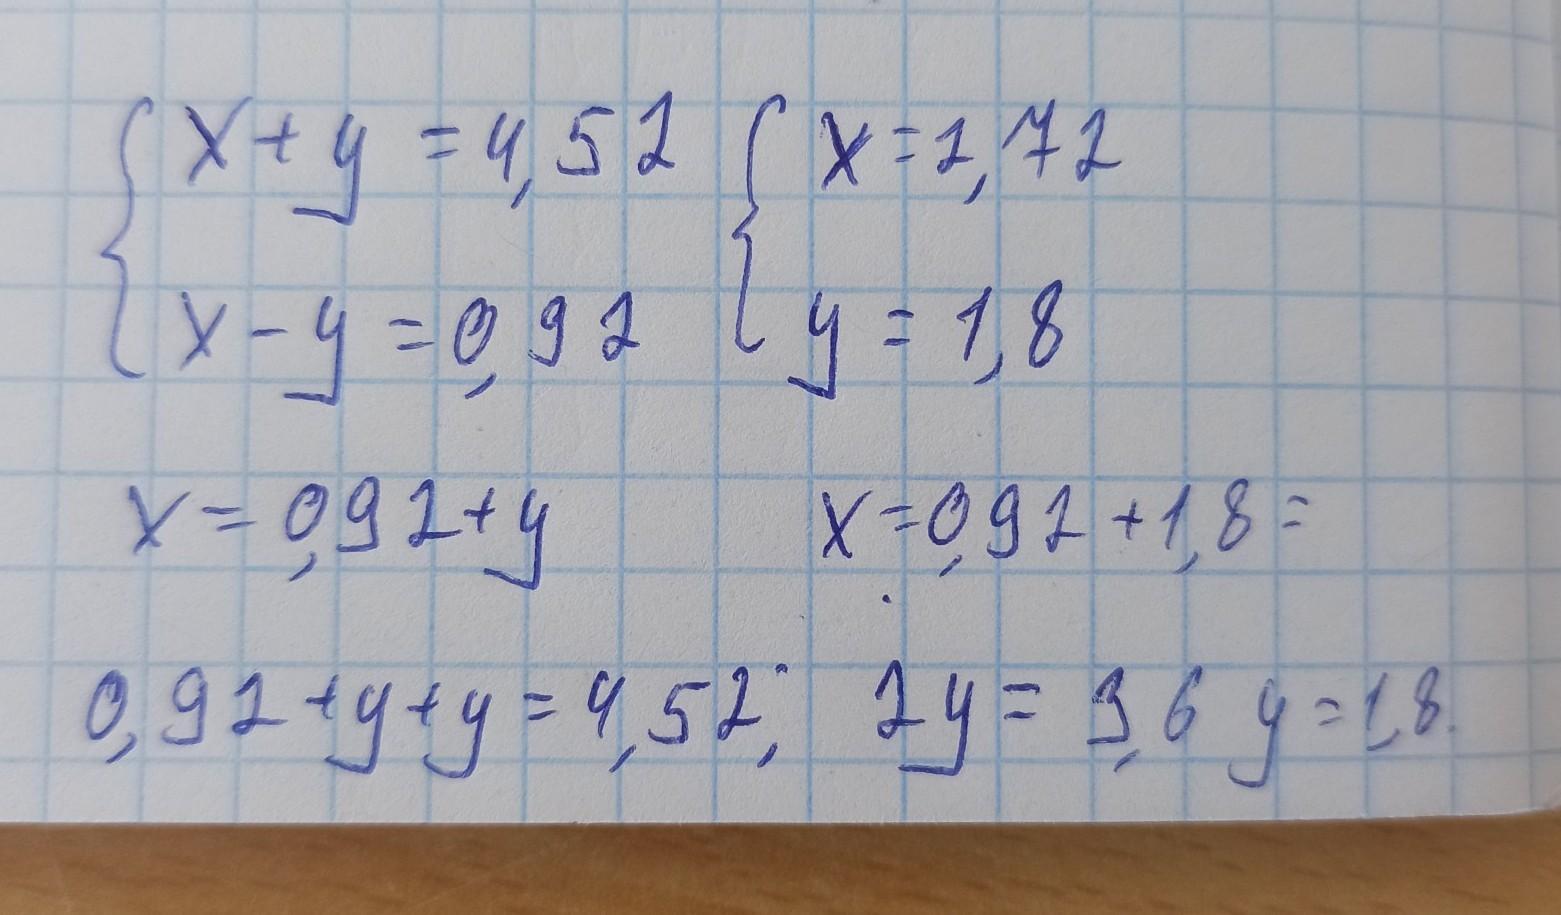 { x + y = 4,52 { x = 2,72
x - y = 0,92 y = 1,8
x = 0,92 + y x = 0,92 + 1,8 =
0,92 + y + y = 4,52; 2y = 3,6 y = 1,8.